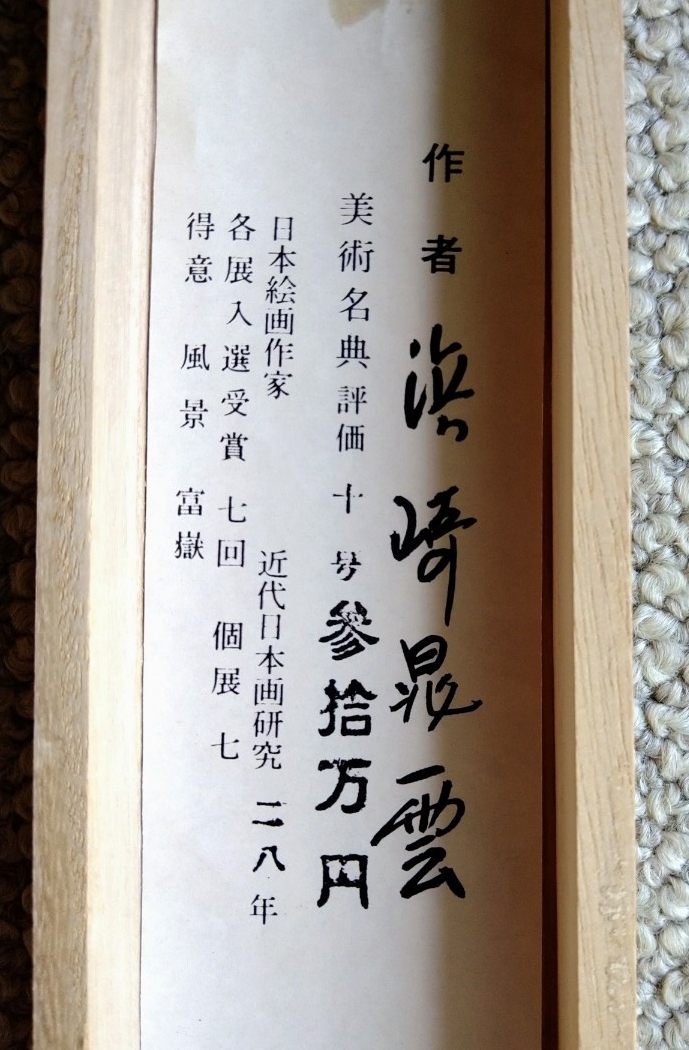 作者 浜崎晃雲
美術名典評価 十号 参拾万円
日本絵画作家 近代日本画研究 二八年
各展入選受賞 七回 個展 七
得意 風景 富嶽